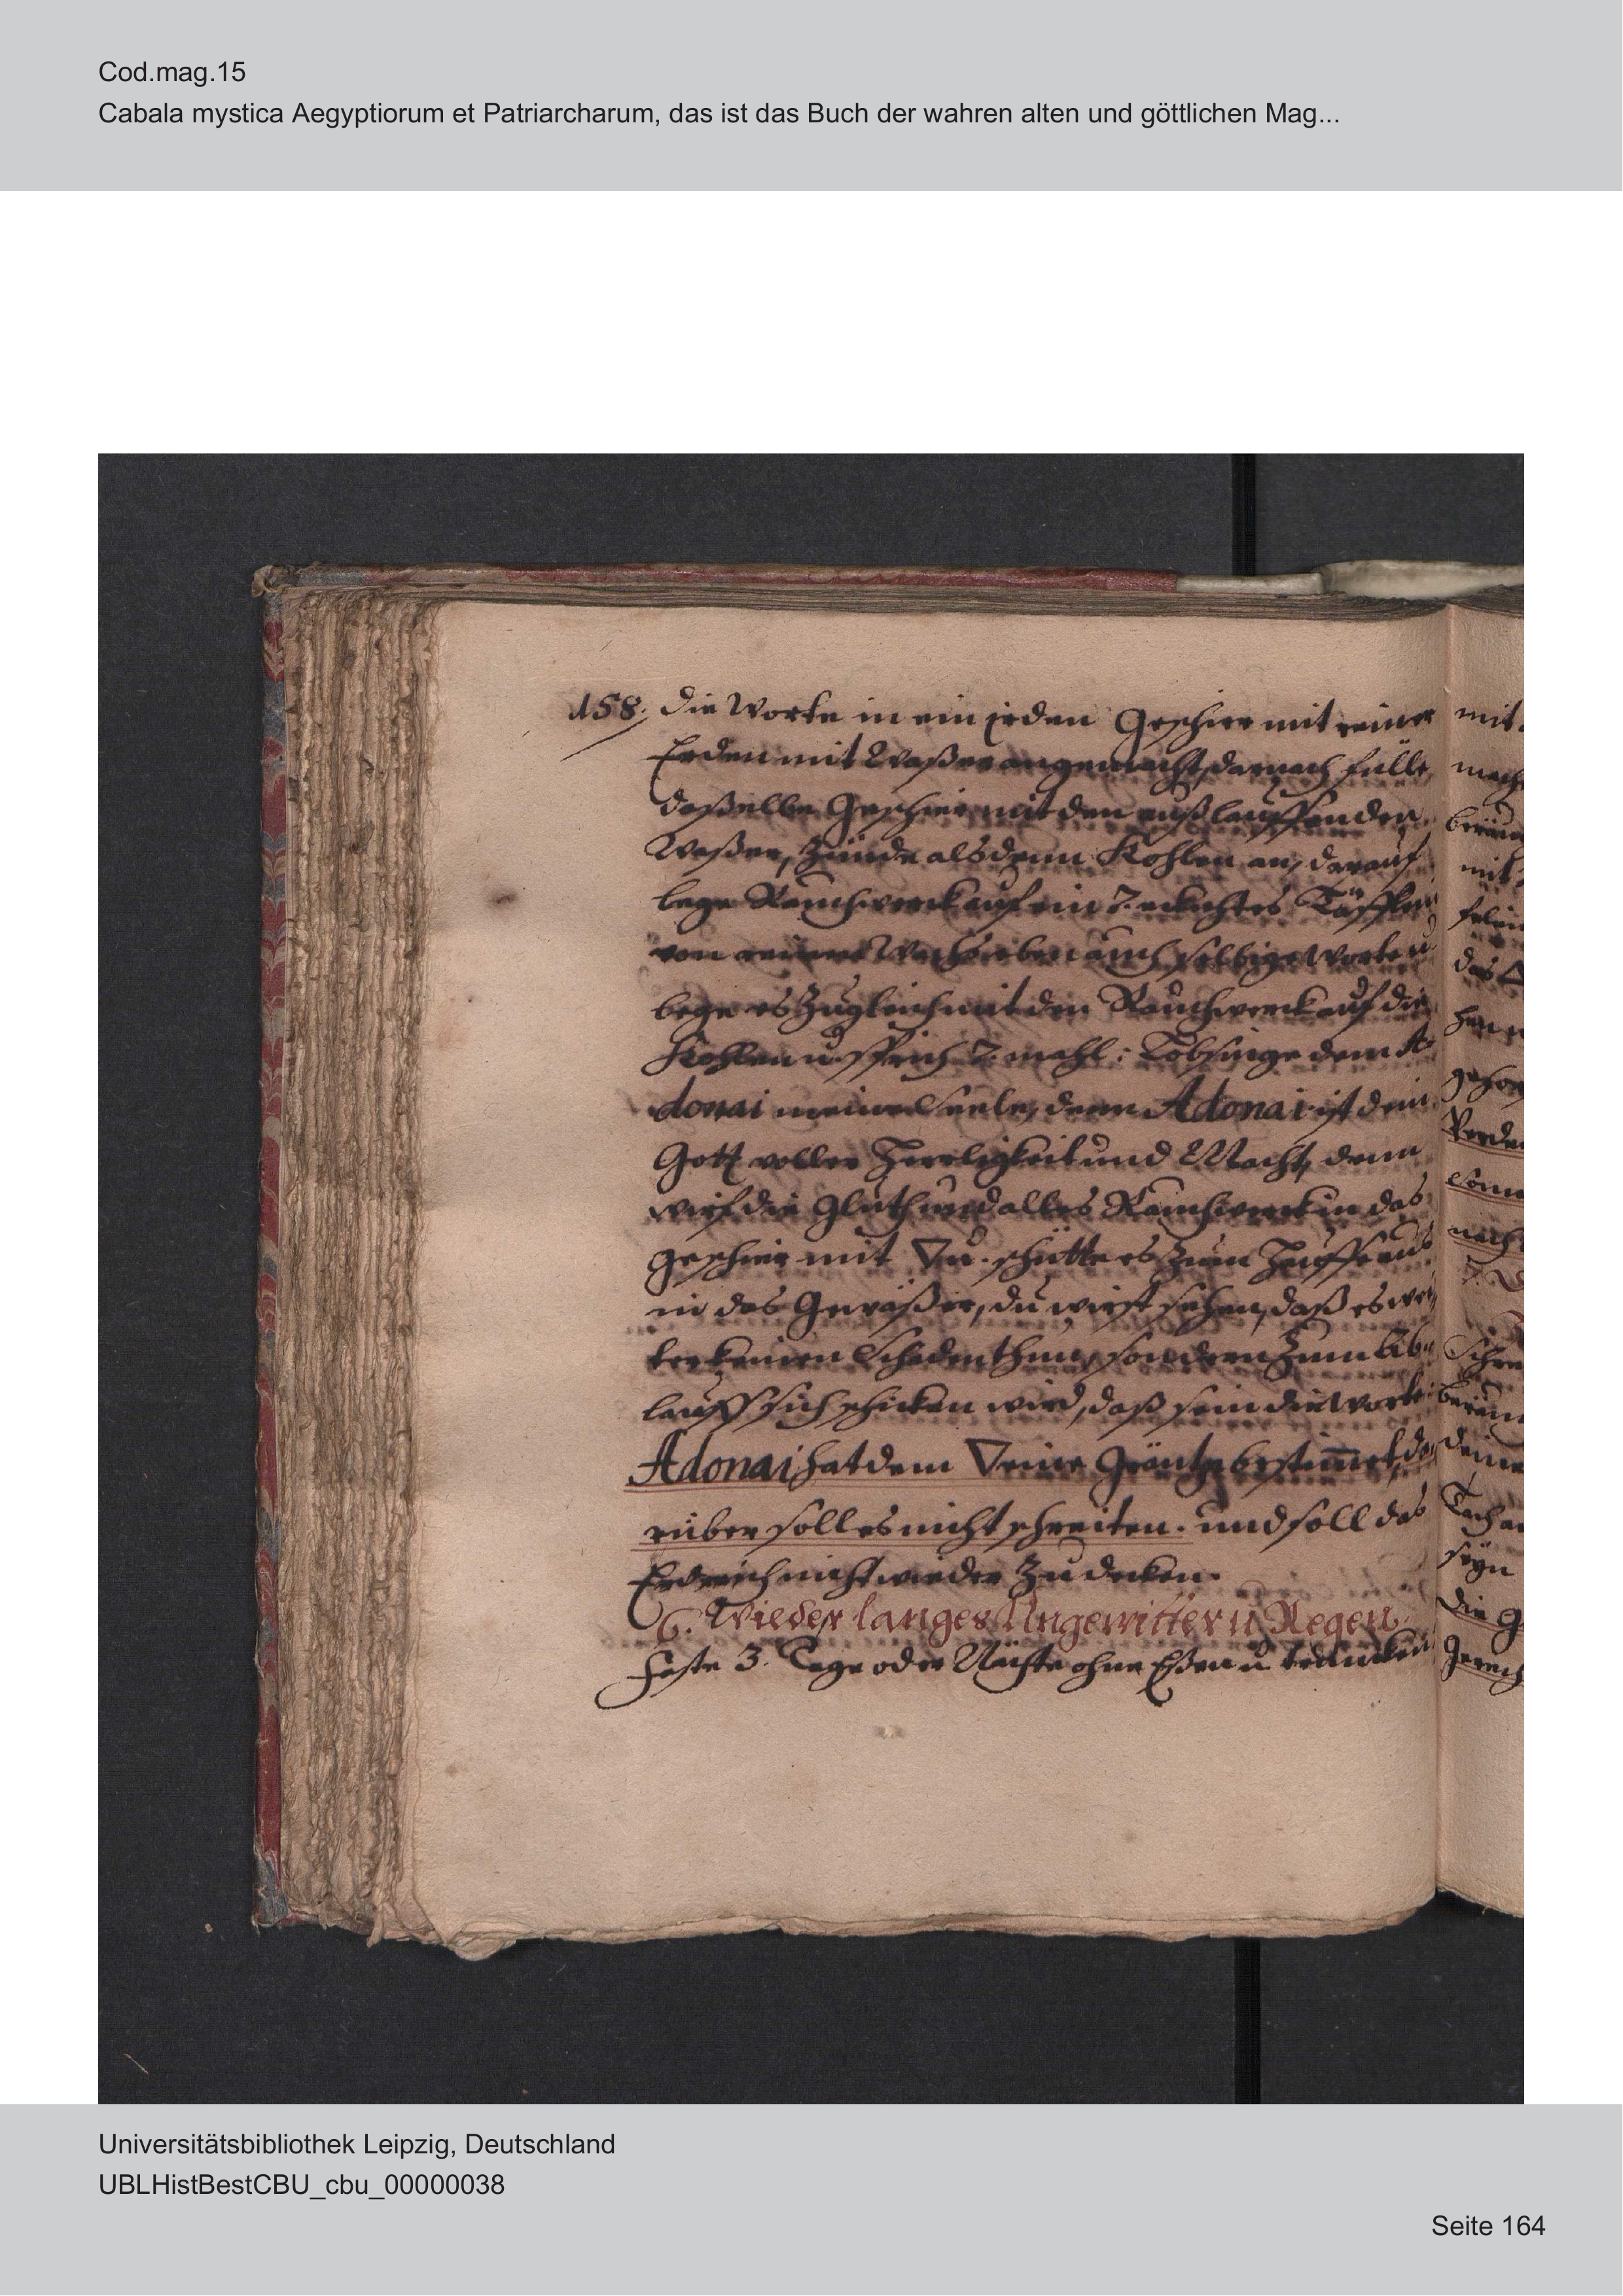 Cod.mag.15
Cabala mystica Aegyptiorum et Patriarcharum, das ist das Buch der wahren alten und göttlichen Mag...
158. die Worte in ein jeden Geschirr mit reiner
Erden mit Waßer angemacht, darnach fülle
daßelbe Geschirr mit den außlauffenden
Waßer, Zünde alsdenn Kohlen an, darauf
lege Rauchwerck auf ein 7. eckichtes Täfflein
von reinem Wachs eben auch selbige Worte u
lege es Zugleich mit den Rauchwerck auf die
Kohlen u. sprich 7. mahl: Lobsinge dem A-
donai meine Seele, denn Adonai ist dein
Gott voller Herrligkeit und Macht, denn
wirf die Gluth und alles Rauchwerck in das
geschirr mit ▽ u. schütte es Zum Hauffe aus
in das Gewäßer, du wirst sehen, daß es wei
ter keinen Schaden thun, sondern Zum Ab-
lauff sich schicken wird, daß sein die Worte:
Adonai hat dem ▽ eine Gräntze bestim̄et, da
rüber soll es nicht schreiten. und soll das
Erdreich nicht wieder Zudecken.
6. Wieder langes Ungewitter ü Regen
Faste 3. Tage oder Nächte ohne Eßen ü trincken
mit
mach
mit
das △
nach
seyn
die G
Universitätsbibliothek Leipzig, Deutschland
UBLHistBestCBU_cbu_00000038
Seite 164